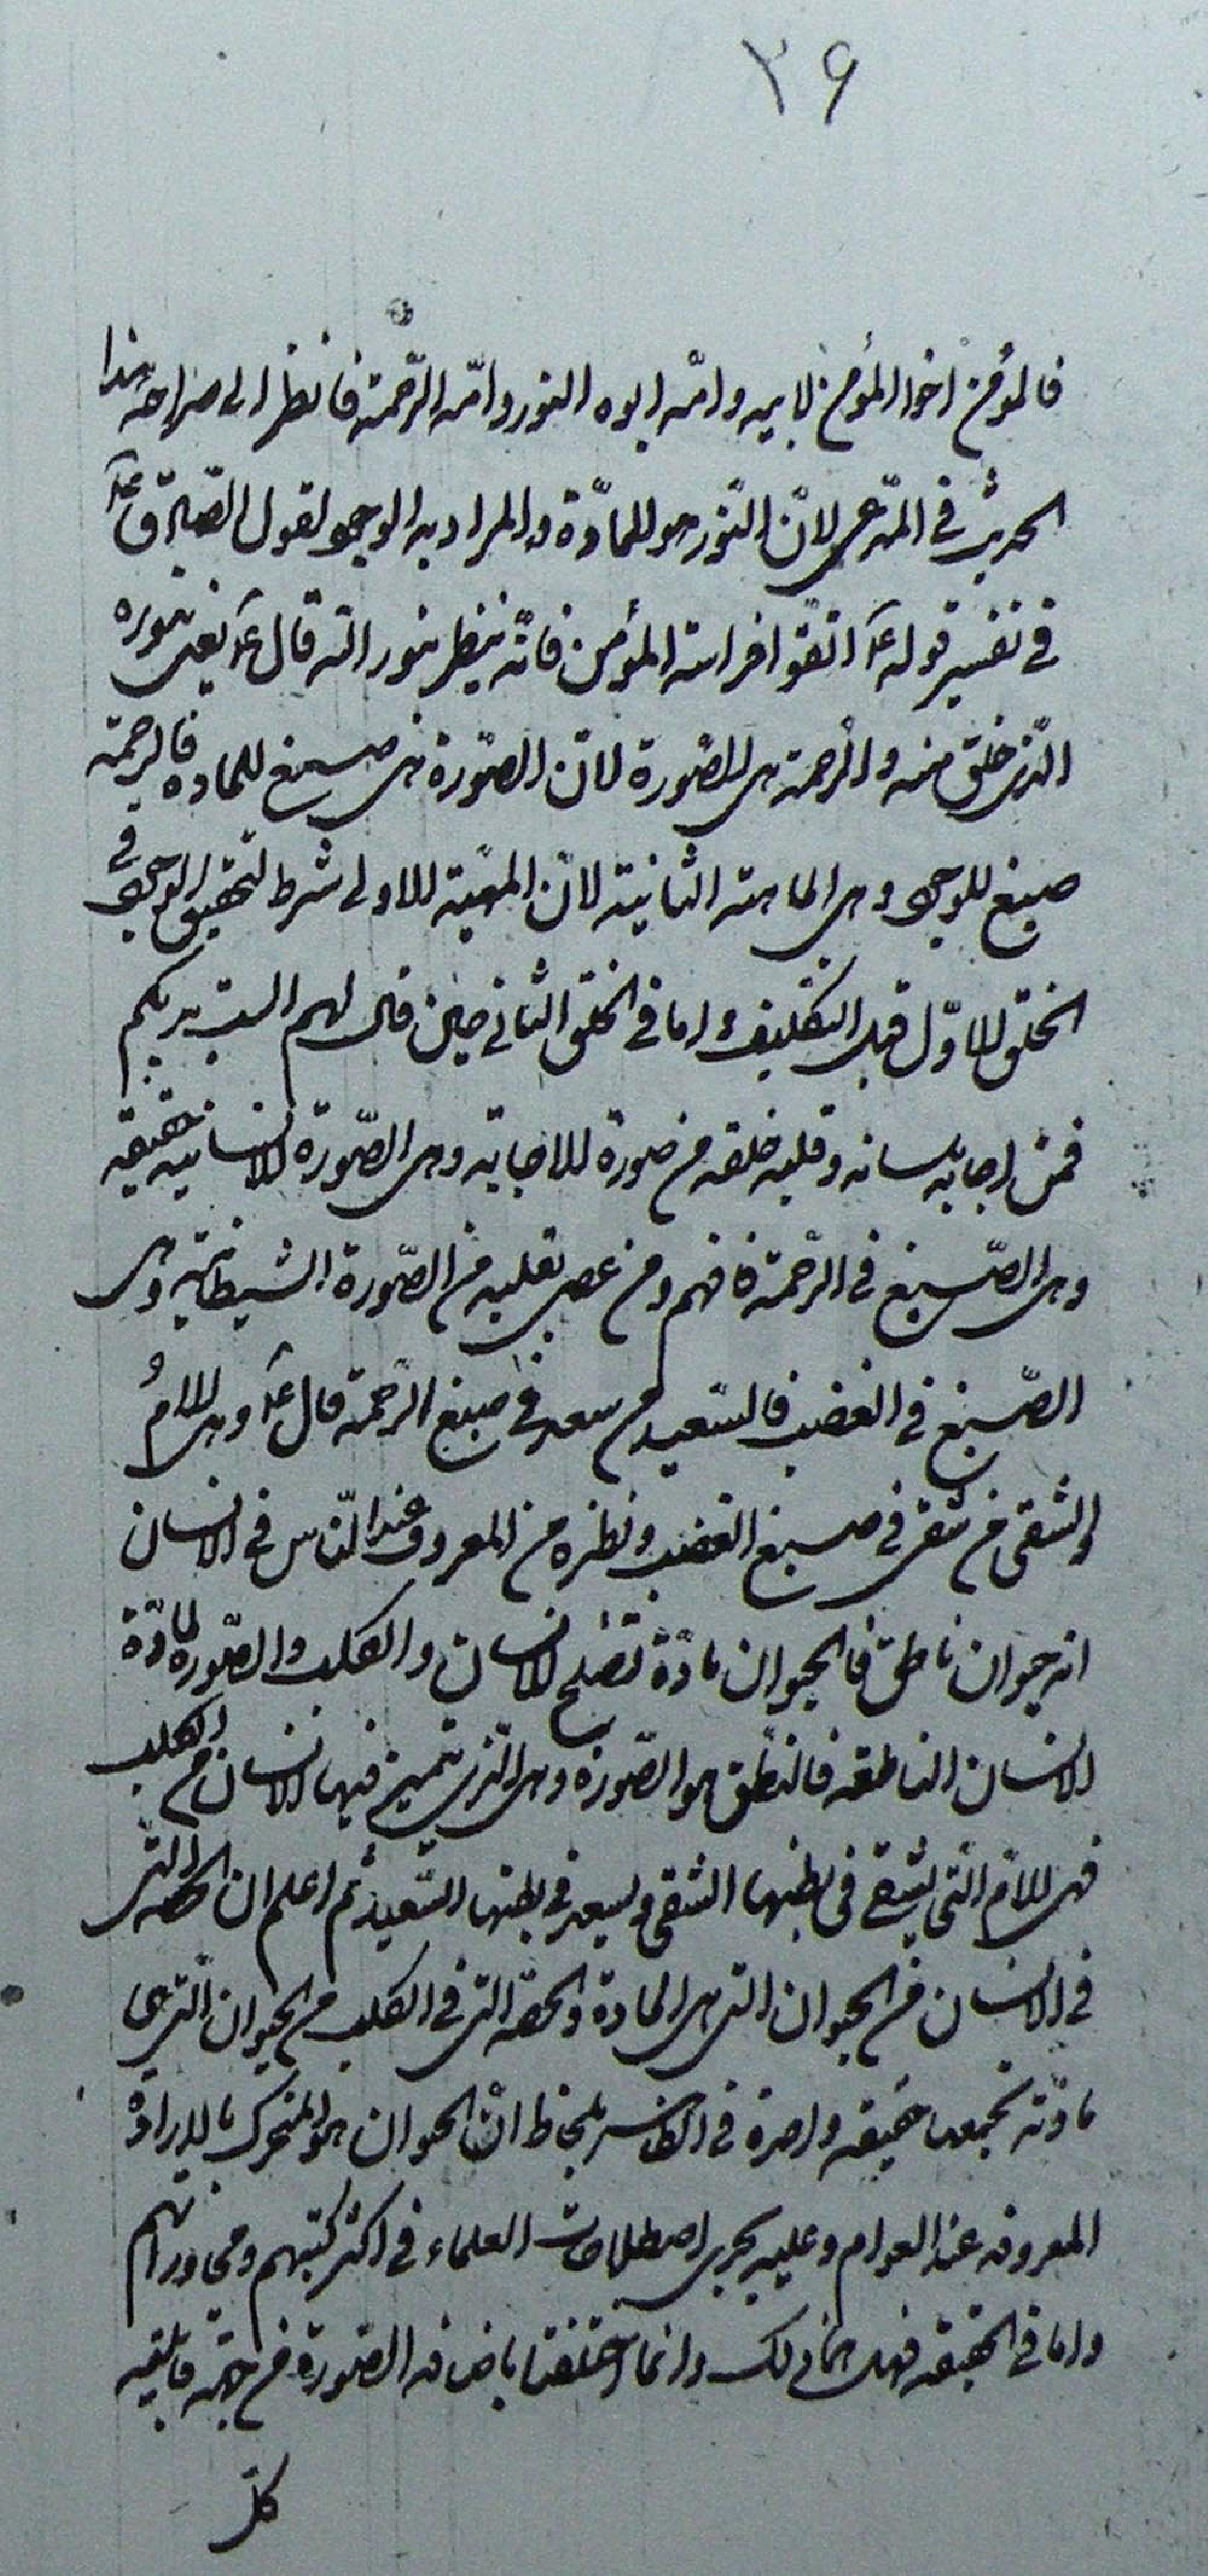 ٣۶
فالمؤمن اخو المؤمن لابيه وامّه ابوه النور وامّه الرّحمة فانظر الى صراحة هذا
الحديث فى المدّعى لانّ النّور هو المادّة والمراد به الوجود لقول الصّادق ع
فى تفسير قوله ع اتقوا فراسة المؤمن فانّه ينظر بنور الله قال ع يعنى بنوره
الّذى خلق منه والرحمة هى الصّورة لانّ الصّورة هى صبغ المادة فالرحمة
صبغ الوجود وهى الماهية الثانية لانّ المهيّة الاولى شرط لتحقّق الوجود فى
الخلق الاوّل قبل التكليف واما فى الخلق الثانى حين قال لهم الست بربكم
فمن اجاب بلسانه وقلبه خلقه من صورة الاجابة وهى الصّورة الانسانية حقيقيه
وهى الصّبغ فى الرّحمة فافهم ومن عصى بقلبه من الصّورة الشيطانية وهى
الصّبغ فى الغضب فالسّعيد من سعد فى صبغ الرّحمة قال ع وهى الامّ
والشقى من شقى فى صبغ الغضب ونظره من المعروف عند النّاس فى الانسان
انه حيوان ناطق فالحيوان مادّة تصلح للانسان والكلب والصّورة لمادّة
الانسان الناطقه فالنّطق هو الصّورة وهى الّتى يتميز فيها الانسان من الكلب
فهى الامّ الّتى يشقى فى بطنها الشقى ويسعد فى بطنها السّعيد ثم اعلم ان الحصّه الّتى
فى الانسان من الحيوان التى هى المادة والحصّه التى فى الكلب من الحيوان الّتى هى
مادّته تجمعهما حقيقه واحدة فى الظاهر بلحاظ انّ الحيوان هو المتحرك بالارادة
المعروفه عند العوام وعليه يجرى اصطلاحات العلماء فى اكثر كتبهم ومحاوراتهم
واما فى الحقيقه فهما كذلك وانما اختلفتا باضافه الصّورة من جهة قابليه
كلّ